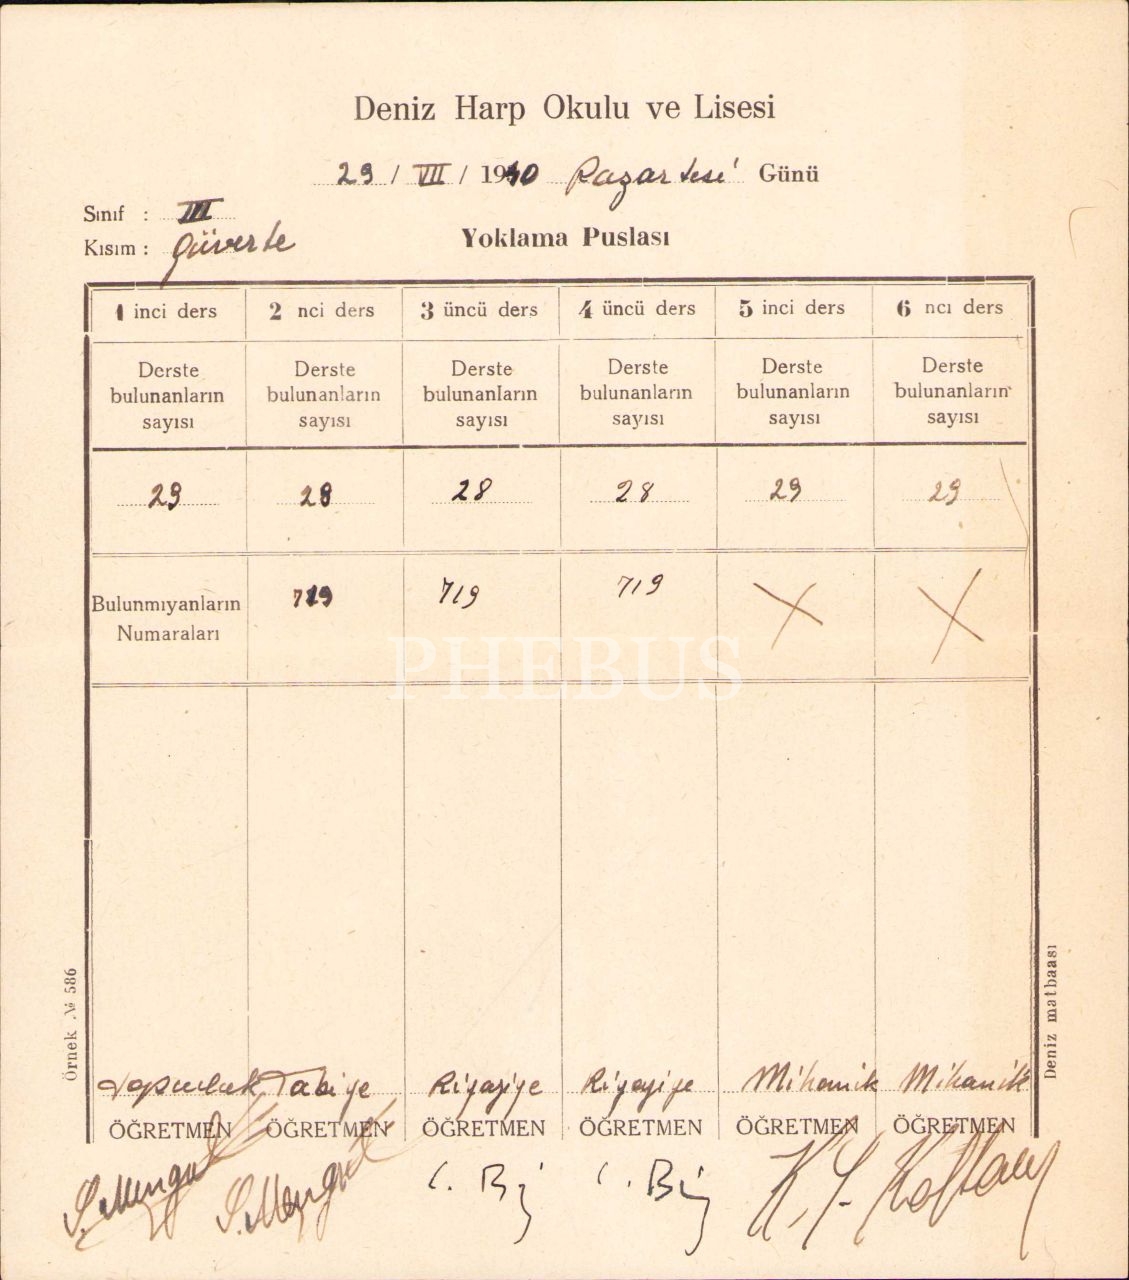 Deniz Harp Okulu ve Lisesi
29 / VII / 1940 Pazartesi Günü
Sınıf : III
Kısım : Güverte
Yoklama Puslası
1 inci ders 2 nci ders 3 üncü ders 4 üncü ders 5 inci ders 6 ncı ders
Derste Derste Derste Derste Derste Derste
bulunanların bulunanların bulunanların bulunanların bulunanların bulunanların
sayısı sayısı sayısı sayısı sayısı sayısı
29 28 28 28 29 29
Bulunmıyanların 719 719 719
Numaraları
PHEBUS
Örnek № 586
Deniz matbaası
Tabiye Riyaziye Riyaziye Mihanik Mihanik
ÖĞRETMEN ÖĞRETMEN ÖĞRETMEN ÖĞRETMEN ÖĞRETMEN ÖĞRETMEN